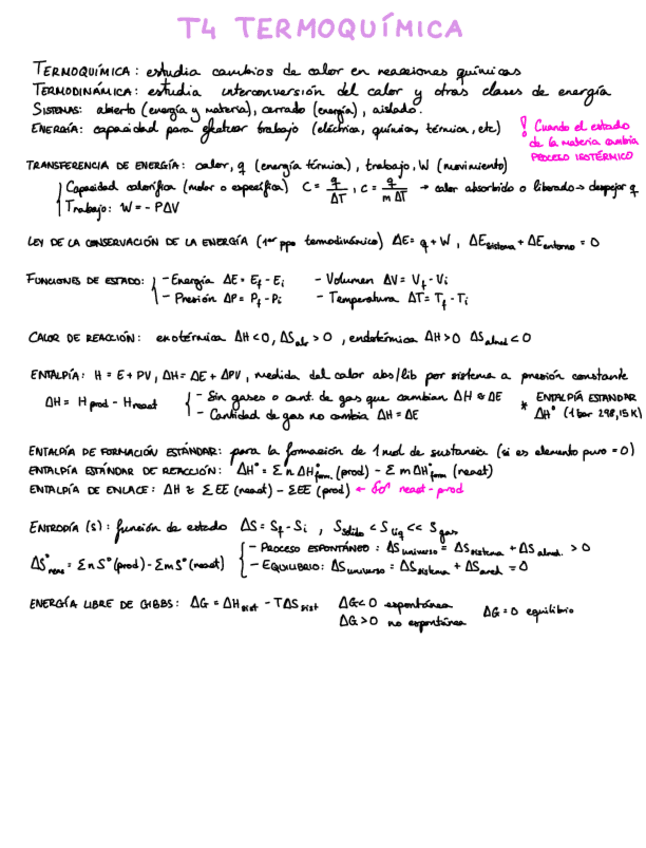 T4 TERMOQUÍMICA
TERMOQUÍMICA: estudia cambios de calor en reacciones químicas
TERMODINÁMICA: estudia interconversión del calor y otras clases de energía
SISTEMAS: abierto (energía y materia), cerrado (energía), aislado.
ENERGÍA: capacidad para efectuar trabajo (eléctrica, química, térmica, etc)
! Cuando el estado
de la materia cambia
PROCESO ISOTÉRMICO
TRANSFERENCIA DE ENERGÍA: calor, q (energía térmica), trabajo, W (movimiento)
Capacidad calorífica (molar o específica) C = q/ΔT, C = q/mΔT → calor absorbido o liberado → despejar q
Trabajo: W = - PΔV
LEY DE LA CONSERVACIÓN DE LA ENERGÍA (1er ppo termodinámico) ΔE = q + W, ΔEsistema + ΔEentorno = 0
FUNCIONES DE ESTADO: - Energía ΔE = Ef - Ei - Volumen ΔV = Vf - Vi
- Presión ΔP = Pf - Pi - Temperatura ΔT = Tf - Ti
CALOR DE REACCIÓN: exotérmica ΔH < 0, ΔSalr > 0, endotérmica ΔH > 0 ΔSalred < 0
ENTALPÍA: H = E + PV, ΔH = ΔE + ΔPV, medida del calor abs/lib por sistema a presión constante
ΔH = Hprod - Hreact - Sin gases o cant. de gas que cambian ΔH ≈ ΔE * ENTALPÍA ESTANDAR
- Cantidad de gas no cambia ΔH = ΔE ΔH° (1 bar 298,15K)
ENTALPÍA DE FORMACIÓN ESTÁNDAR: para la formación de 1 mol de sustancia (si es elemento puro = 0)
ENTALPÍA ESTÁNDAR DE REACCIÓN: ΔH° = Σ n ΔH°form. (prod) - Σ m ΔH°form (react)
ENTALPÍA DE ENLACE: ΔH ≈ Σ EE (react) - ΣEE (prod) ← react - prod
ENTROPÍA (S): función de estado ΔS = Sf - Si, Ssólido < Slíq << Sgas
- PROCESO ESPONTÁNEO: ΔSuniverso = ΔSsistema + ΔSalred. > 0
ΔS°reac = Σ n S° (prod) - Σ m S° (react) - EQUILIBRIO: ΔSuniverso = ΔSsistema + ΔSalred = 0
ENERGÍA LIBRE DE GIBBS: ΔG = ΔHsist - TΔSsist ΔG < 0 espontánea ΔG = 0 equilibrio
ΔG > 0 no espontánea